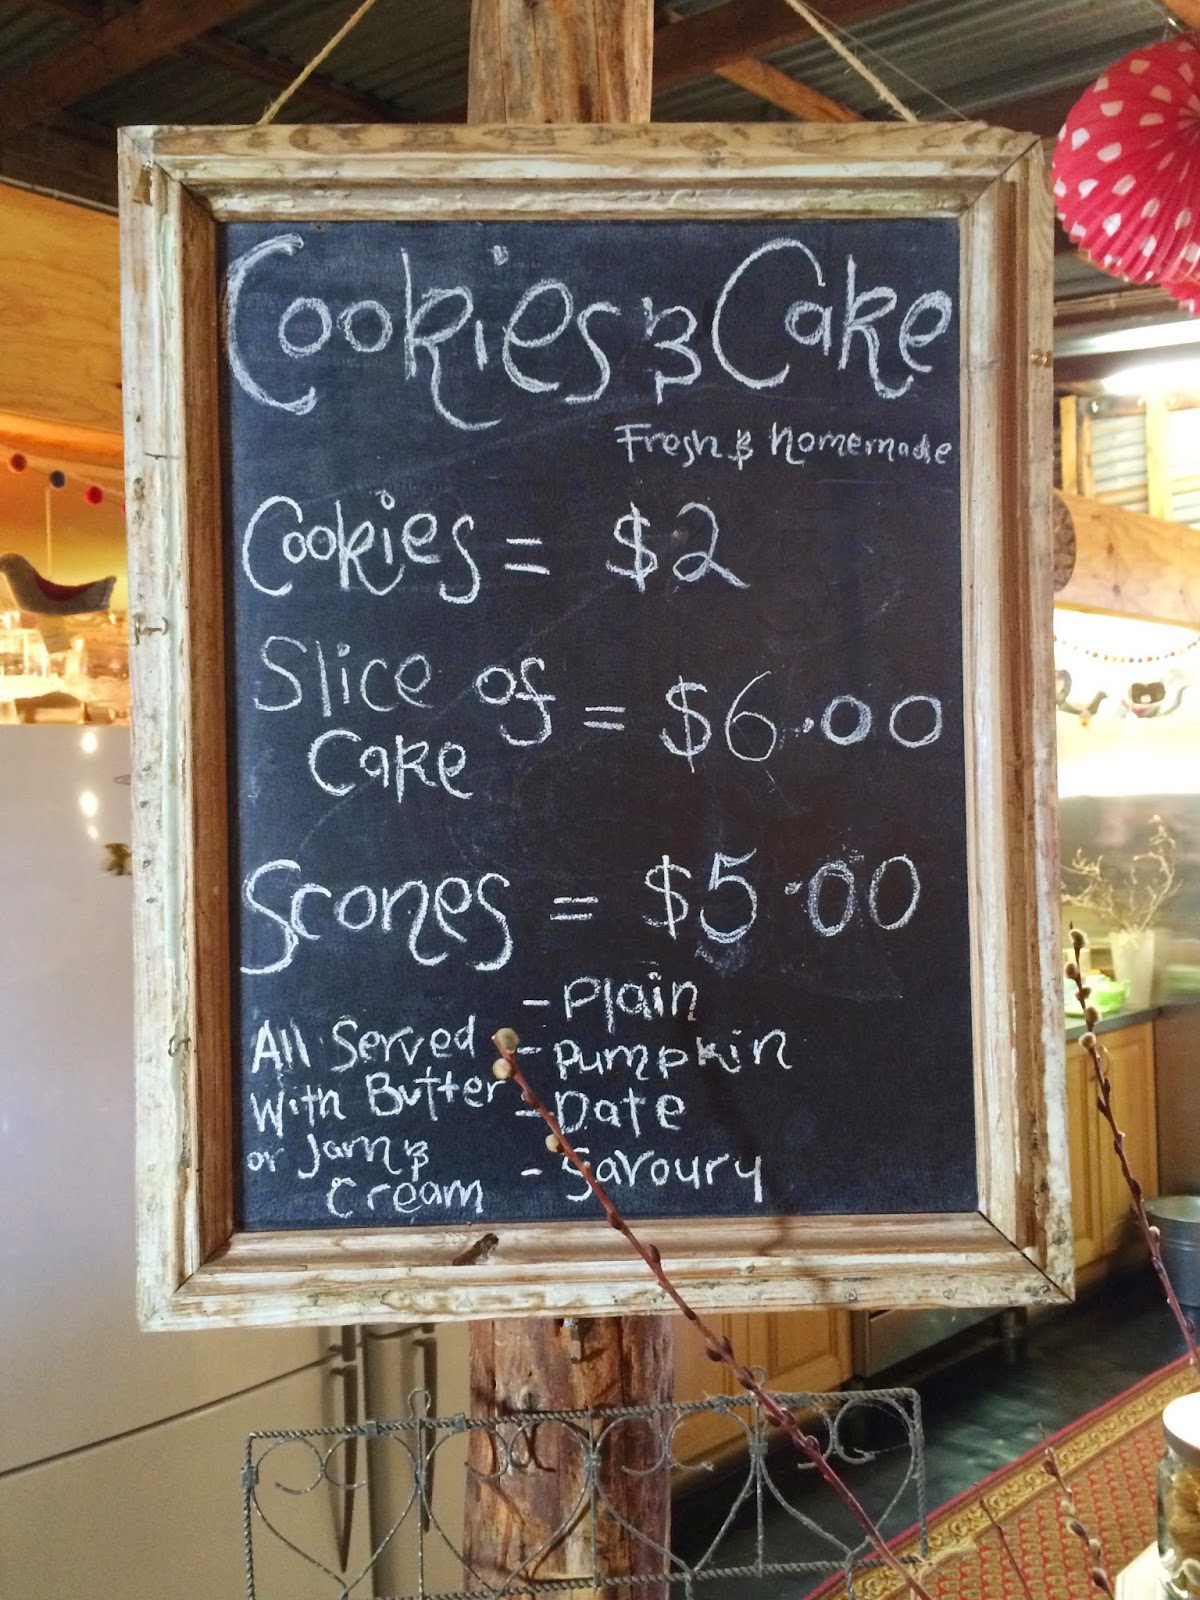 Cookies & Cake
Fresh & homemade
Cookies = $2
Slice of
Cake = $6.00
Scones = $5.00
- Plain
- Pumpkin
- Date
- Savoury
All Served
With Butter
or Jam &
Cream